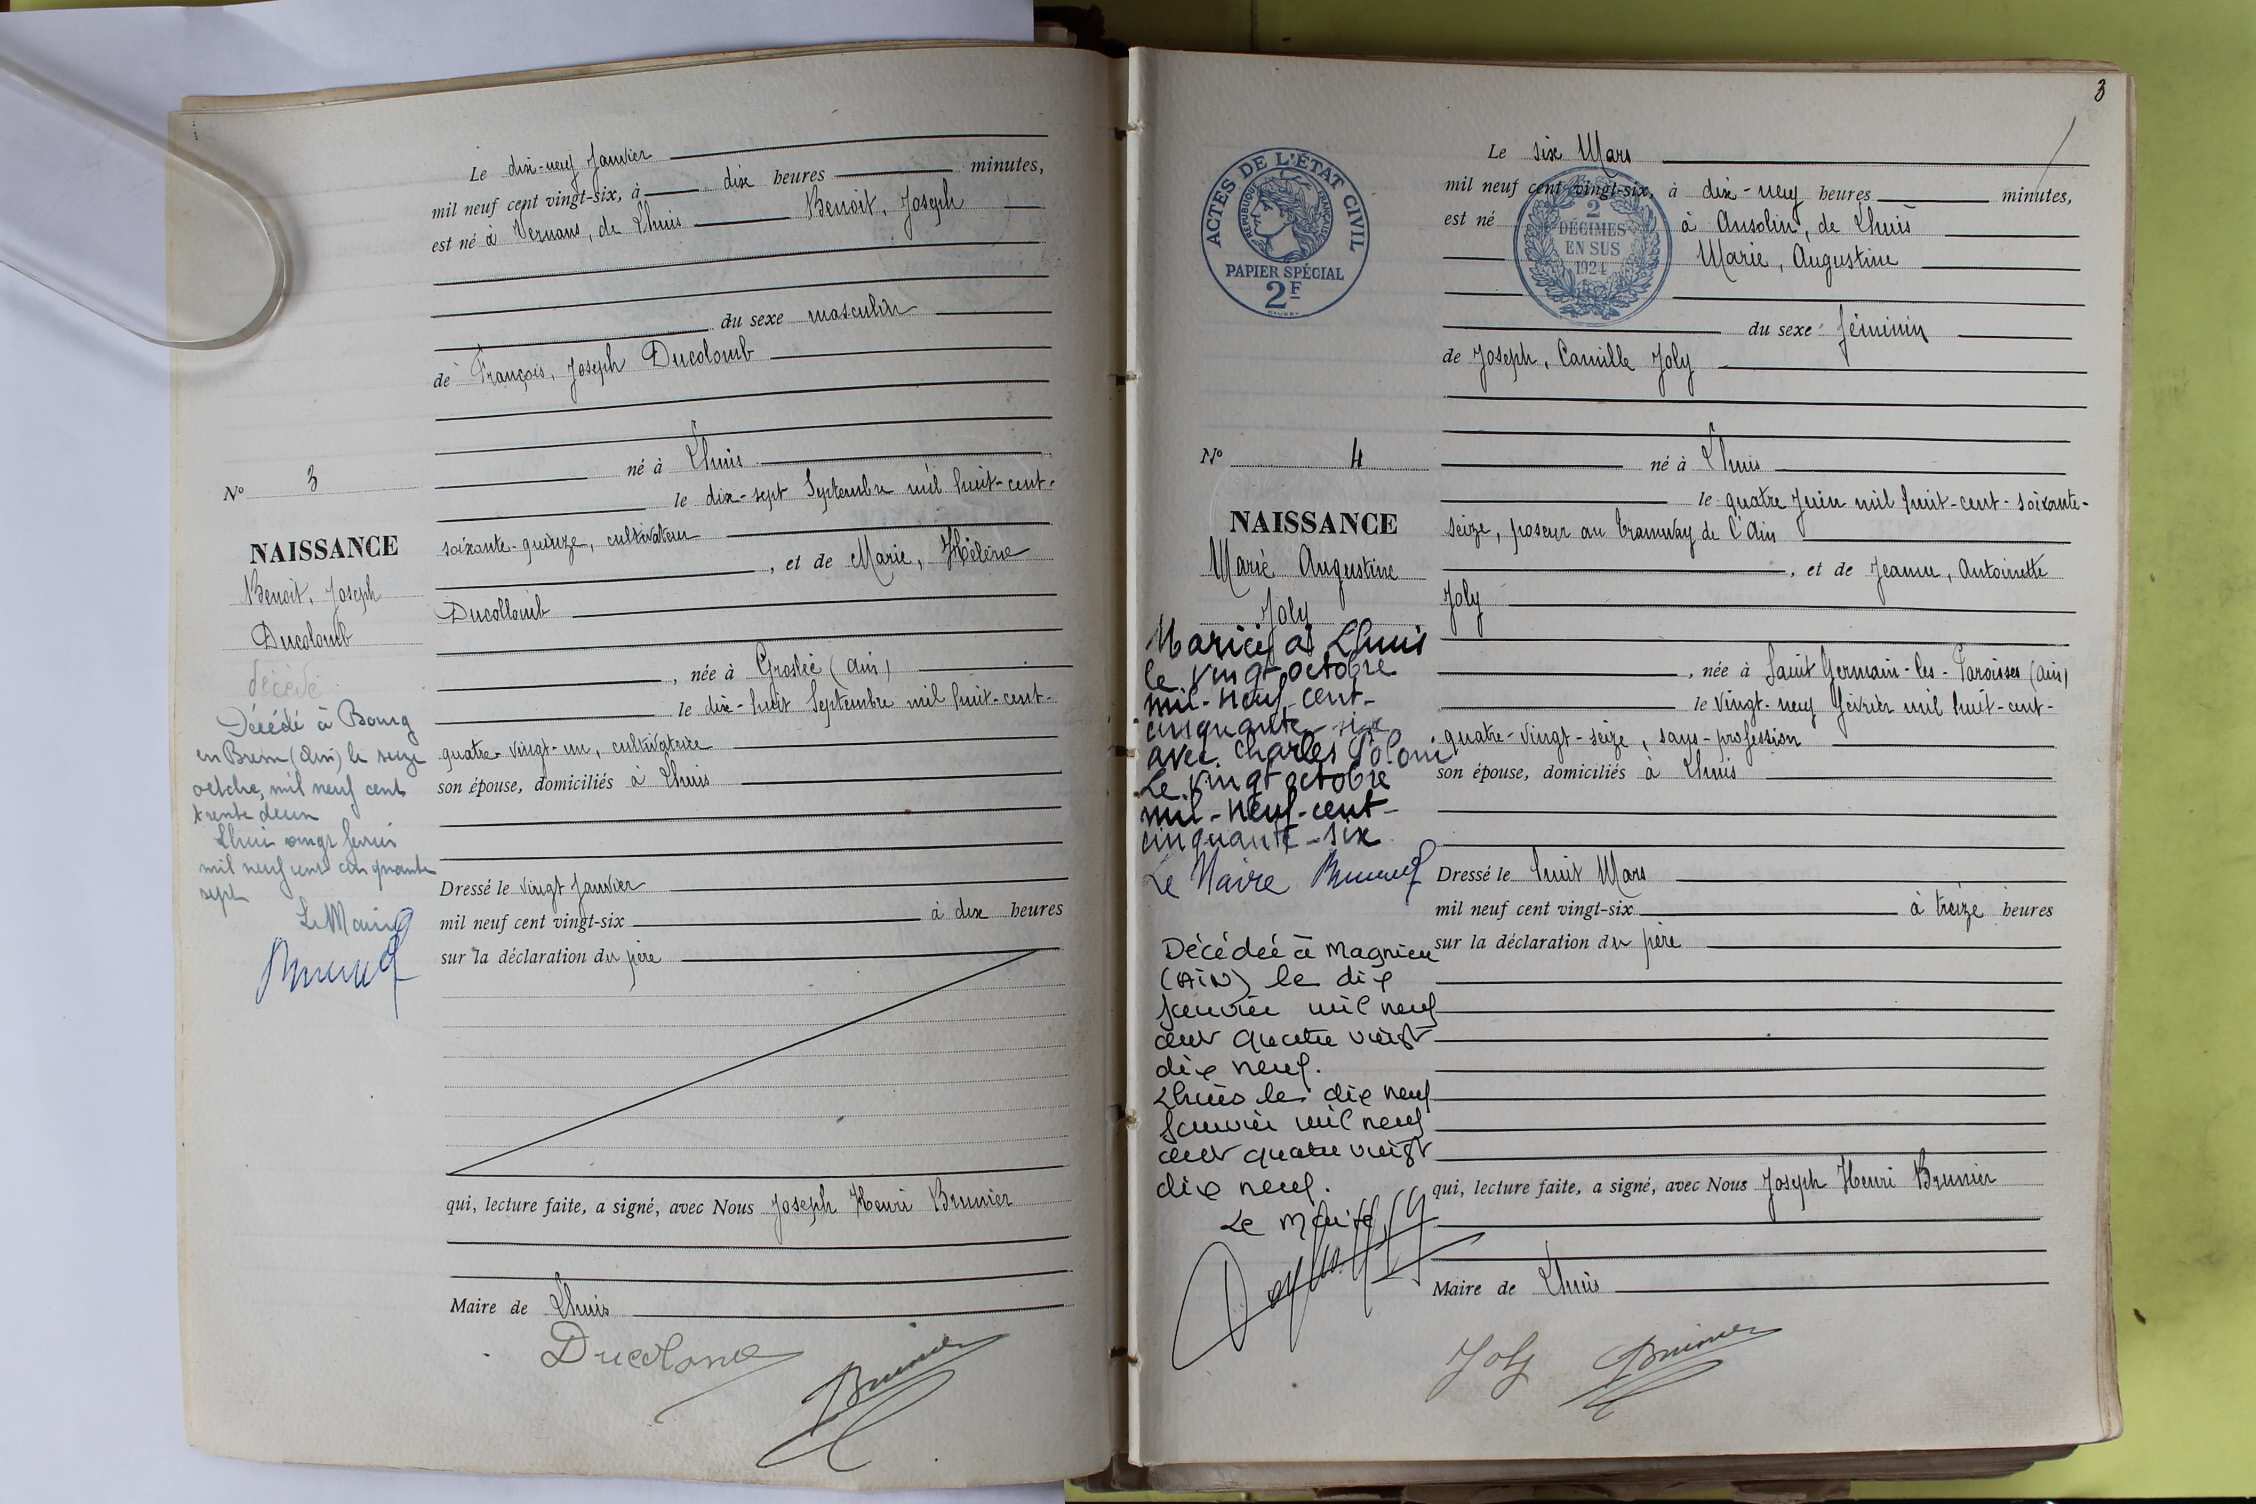 Le dix-neuf Janvier
mil neuf cent vingt-six, à dix heures minutes,
est né à Vernans, de Lhuis Benoit, Joseph
du sexe masculin
de François, Joseph Ducolomb
né à Lhuis
le dix-sept Septembre mil huit-cent-
soixante-quinze, cultivateur
, et de Marie, Hélène
Ducollomb
, née à Groslée (Ain)
le dix-huit Septembre mil huit-cent-
quatre-vingt-un, cultivatrice
son épouse, domiciliés à Lhuis
Dressé le vingt Janvier
mil neuf cent vingt-six à dix heures
sur la déclaration du père
qui, lecture faite, a signé, avec Nous Joseph Henri Brunier
Maire de Lhuis
Brunier
No 3
NAISSANCE
Benoit, Joseph
Ducolomb
décédé
Décédé à Bourg
en Bresse (Ain) le seize
octobre, mil neuf cent
trente deux
Lhuis vingt
mil neuf cent cinquante
sept
Le Maire
3
ACTES DE L'ÉTAT CIVIL
RÉPUBLIQUE FRANÇAISE
PAPIER SPÉCIAL
2F
2
DÉCIMES
EN SUS
1924
Le six Mars
mil neuf cent vingt-six, à dix-neuf heures minutes,
est né à Ansolin, de Lhuis
Marie, Augustine
du sexe féminin
de Joseph, Camille Joly
né à Lhuis
le quatre Juin mil huit-cent-soixante-
seize, poseur au tramway de l'Ain
, et de Jeanne, Antoinette
Joly
, née à Saint Germain-les-Paroisses (Ain)
le vingt-neuf Février mil huit-cent-
quatre-vingt-seize, sans-profession
son épouse, domiciliés à Lhuis
Dressé le huit Mars
mil neuf cent vingt-six à treize heures
sur la déclaration du père
qui, lecture faite, a signé, avec Nous Joseph Henri Brunier
Maire de Lhuis
Joly Brunier
No 4
NAISSANCE
Marie Augustine
Joly
Mariée à Lhuis
le vingt octobre
mil-neuf-cent-
cinquante-six
avec Charles
Le vingt octobre
mil-neuf-cent-
cinquante-six
Le Maire
Décédée à Magnieu
(AIN) le dix
janvier mil neuf
cent quatre vingt
dix neuf.
Lhuis le dix neuf
janvier mil neuf
cent quatre vingt
dix neuf.
Le Maire